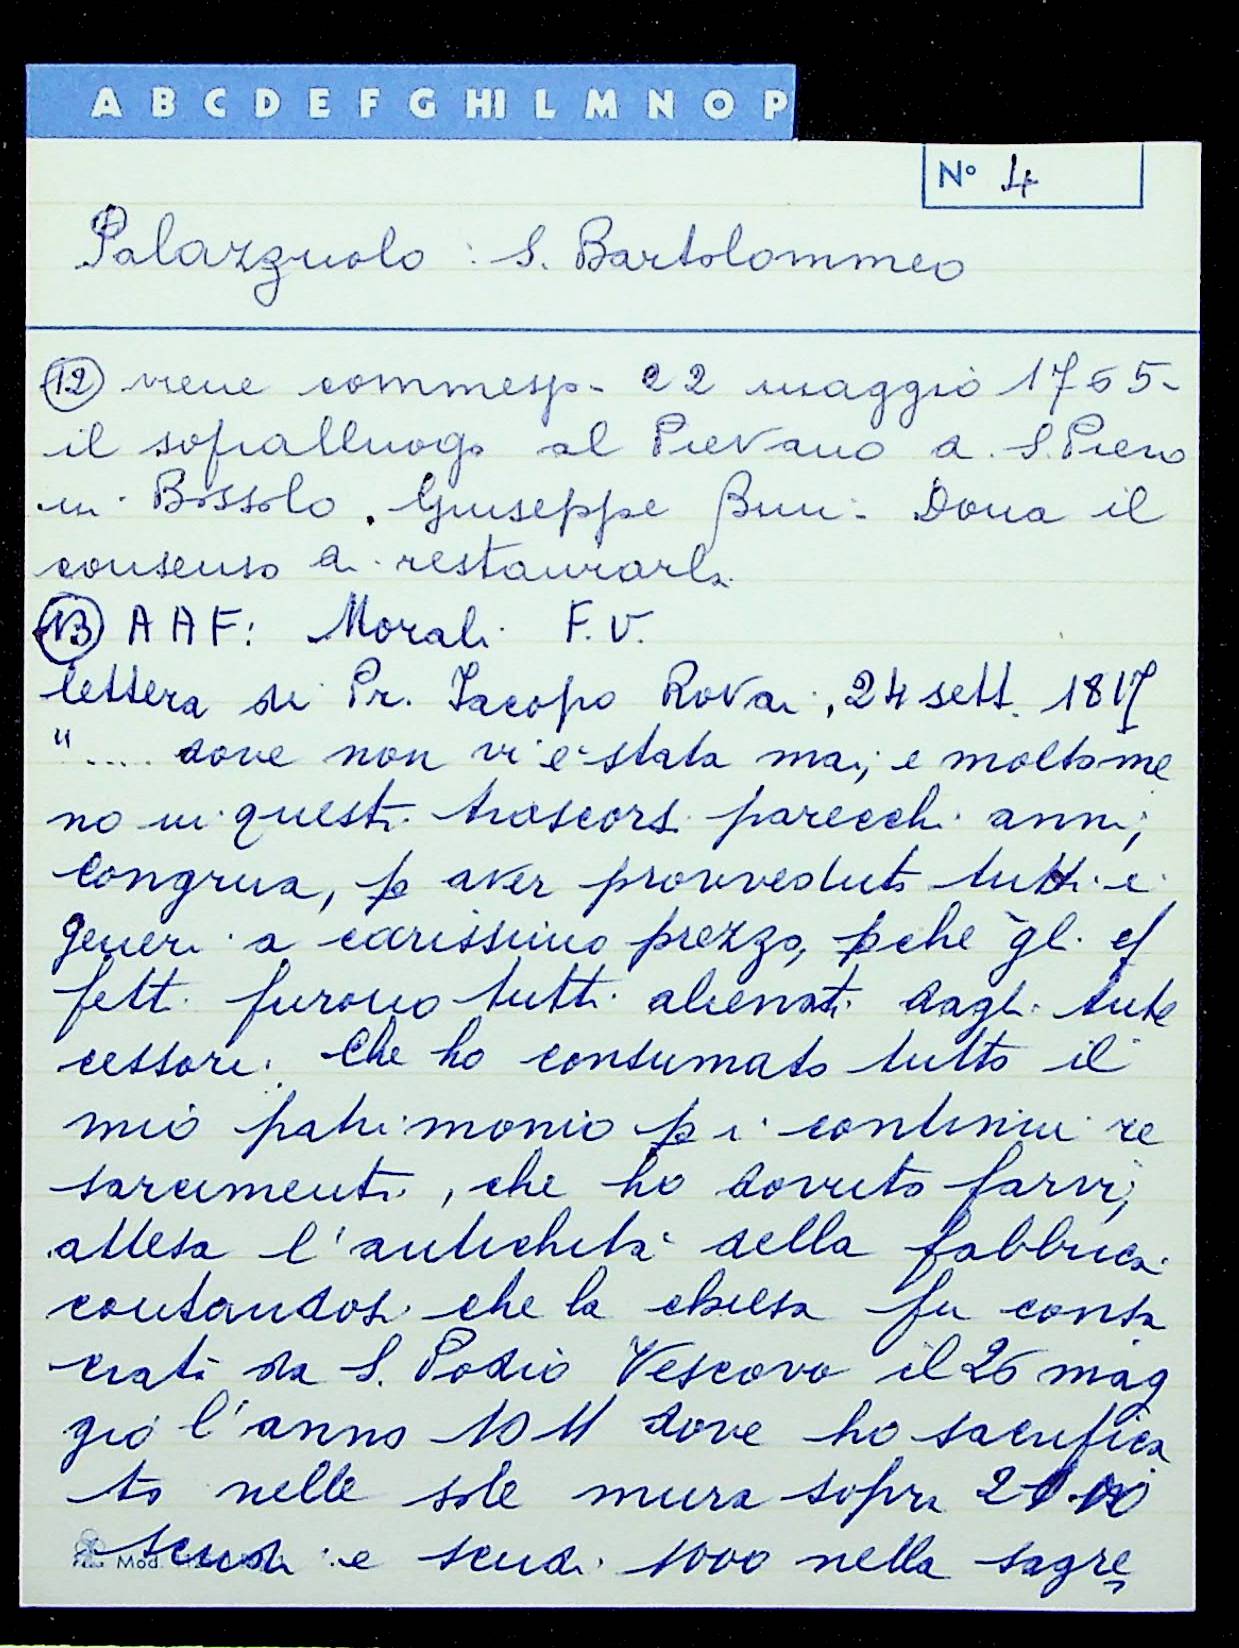 A B C D E F G HI L M N O P
N° 4
Palazzuolo : S. Bartolommeo
(12) viene commesso - 22 maggio 1765 -
il sopralluogo al Pievano di S. Piero
in Bossolo, Giuseppe Buni. Dona il
consenso a restaurarla
(13) A A F: Morali F. V.
lettera di Pr. Jacopo Rovai, 24 sett. 1817
".... dove non vi è stata mai, e molto me
no in questi trascorsi parecchi anni,
congrua, p aver provveduto tutti i
generi a carissimo prezzo, pche gli ef
fetti furono tutti alienati dagli ante
cessori: Che ho consumato tutto il
mio patrimonio p i continui re
sarcimenti, che ho dovuto farvi,
attesa l'antichità della fabbrica
contandosi che la chiesa fu consa
crata da S. Podio Vescovo il 26 mag
gio l'anno 1011 dove ho sacrifica
to nelle sole mura sopra
scudi e scudi 1000 nella sagre
Mod.